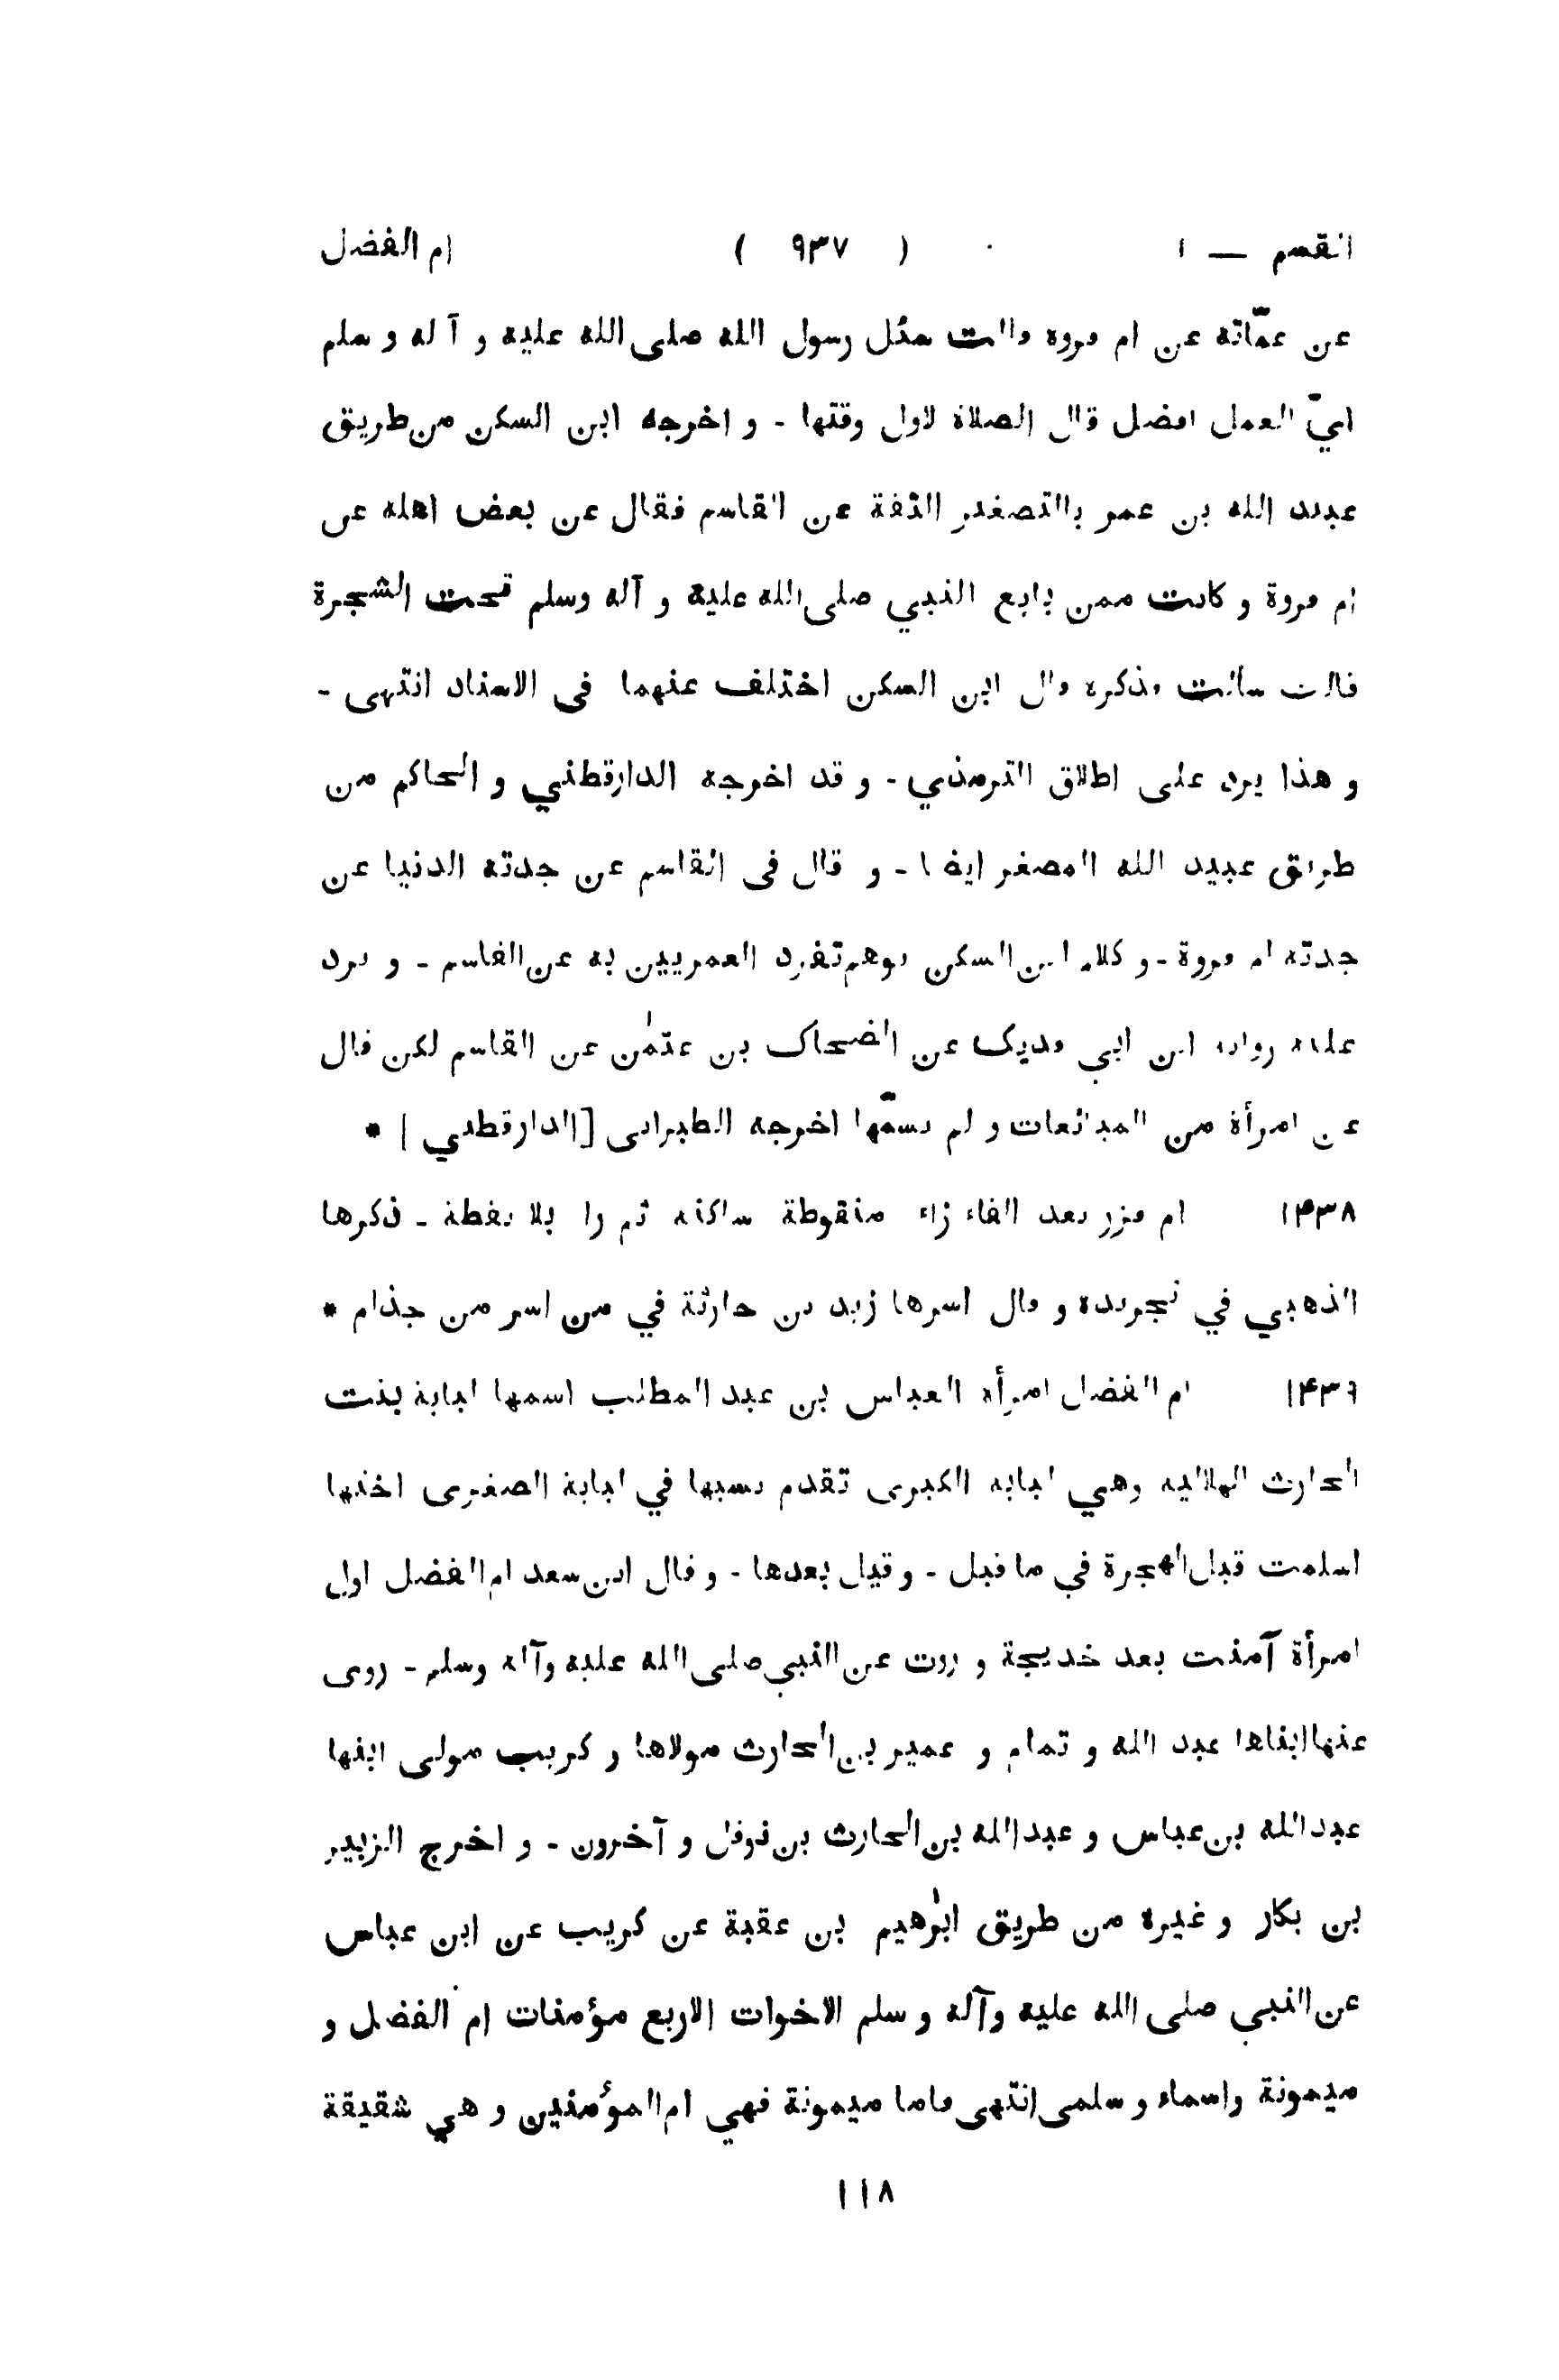 القسم — ١ ( ٩٣٧ ) ام الفضل
عن عمّاته عن ام فروة قالت سئل رسول الله صلى الله عليه و آله و سلم
ايّ العمل افضل قال الصلاة لاول وقتها - و اخرجه ابن السكن من طريق
عبيد الله بن عمر بالتصغير الثقة عن القاسم فقال عن بعض اهله عن
ام فروة و كانت ممن بايع النبي صلى الله عليه و آله وسلم تحت الشجرة
قالت سألت فذكره قال ابن السكن اختلف عنهما فى الاسناد انتهى -
و هذا يرد على اطلاق الترمذي - و قد اخرجه الدارقطني و الحاكم من
طريق عبيد الله المصغر ايضا - و قال فى القاسم عن جدته الدنيا عن
جدته ام فروة - و كلام ابن السكن يوهم تفرد العمريين به عن القاسم - و يرد
عليه رواية ابن ابي فديك عن الضحاك بن عثمٰن عن القاسم لكن قال
عن امرأة من المبائعات و لم يسمّها اخرجه الطبرانى [الدارقطني] *
١٤٣٨ ام فزر بعد الفاء زاء منقوطة ساكنة ثم را بلا نقطة - ذكرها
الذهبي في تجريده و قال اسرها زيد بن حارثة في من اسر من جذام *
١٤٣٩ ام الفضل امرأة العباس بن عبد المطلب اسمها لبابة بنت
الحارث الهلالية وهي لبابة الكبرى تقدم نسبها في لبابة الصغرى اختها
اسلمت قبل الهجرة في ما قيل - و قيل بعدها - و قال ابن سعد ام الفضل اول
امرأة آمنت بعد خديجة و روت عن النبي صلى الله عليه وآله وسلم - روى
عنها ابناها عبد الله و تمام و عمير بن الحارث مولاها و كريب مولى ابنها
عبد الله بن عباس و عبد الله بن الحارث بن نوفل و آخرون - و اخرج الزبير
بن بكار و غيره من طريق ابرٰهيم بن عقبة عن كريب عن ابن عباس
عن النبي صلى الله عليه وآله و سلم الاخوات الاربع مؤمنات ام الفضل و
ميمونة واسماء و سلمى انتهى فاما ميمونة فهي ام المؤمنين و هي شقيقة
١١٨